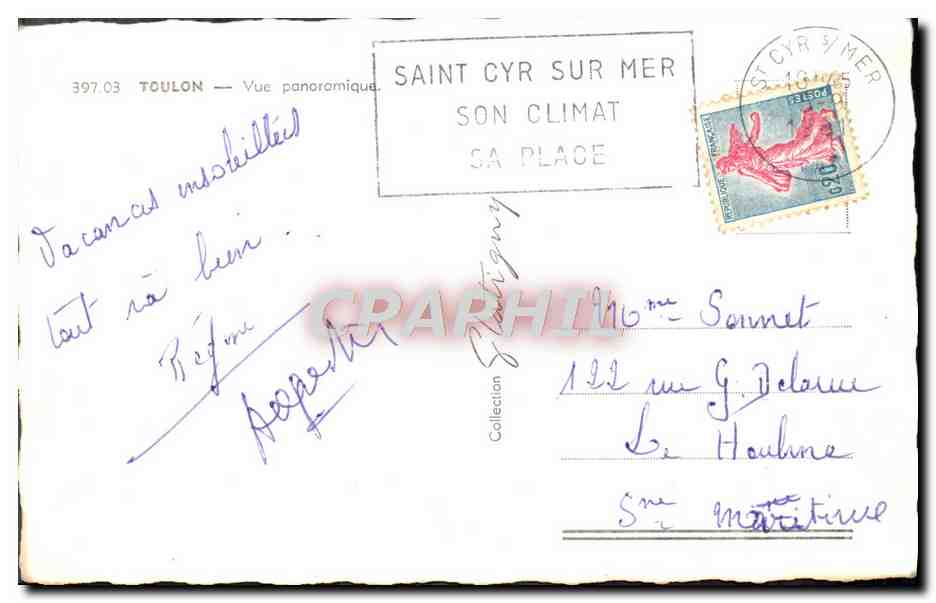 397.03 TOULON — Vue panoramique.
SAINT CYR SUR MER
SON CLIMAT
SA PLAGE
ST CYR S/ MER
POSTES
0,20
REPUBLIQUE FRANÇAISE
Vacances ensoleillées
tout va bien.
Régine
Collection
CPARHIL
Mme Sonnet
122 rue G. Delarue
Le Houlme
Sne Maritime